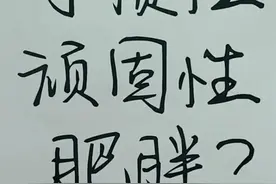 顽固性
肥胖?